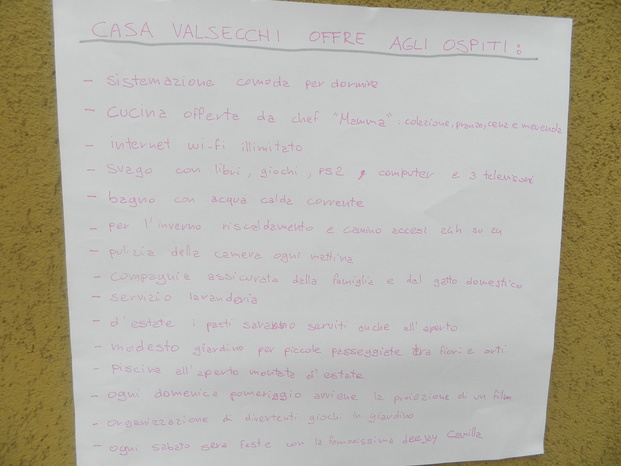 CASA VALSECCHI OFFRE AGLI OSPITI:
- sistemazione comoda per dormire
- CUCINA offerta da chef "Mamma": colazione, pranzo, cena e merenda
- internet wi-fi illimitato
- Svago con libri, giochi, PS2, computer e 3 televisori
- bagno con acqua calda corrente
- per l'inverno riscaldamento e camino accesi 24h su 24
- pulizia della camera ogni mattina
- compagnia assicurata dalla famiglia e dal gatto domestico
- servizio lavanderia
- d'estate i pasti saranno serviti anche all'aperto
- modesto giardino per piccole passeggiate tra fiori e orti
- Piscina all'aperto montata d'estate
- ogni domenica pomeriggio avviene la proiezione di un film
- organizzazione di divertenti giochi in giardino
- ogni sabato sera feste con la famosissima deejay Camilla